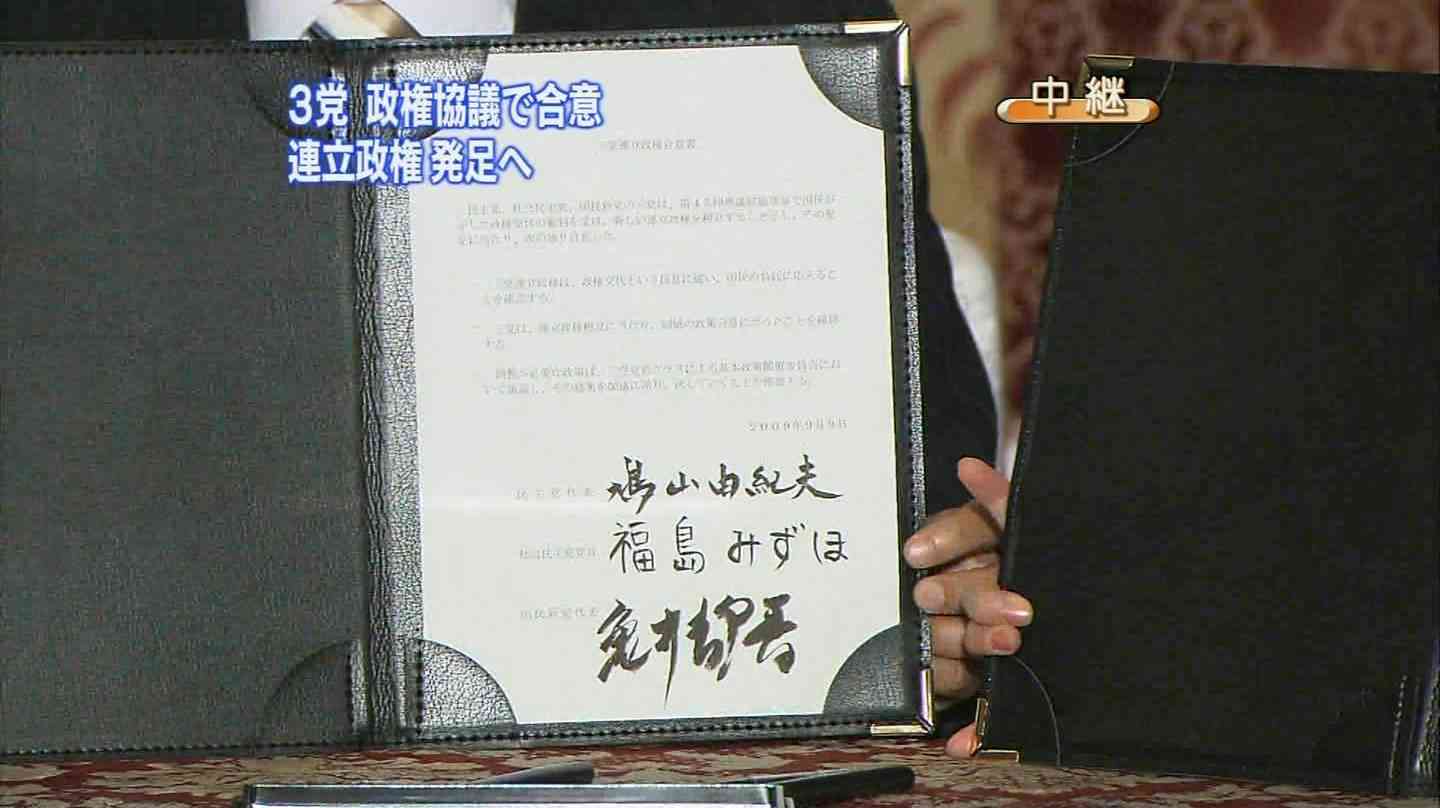 3党 政権協議で合意
連立政権 発足へ
中継
三党連立政権合意書
民主党、社会民主党、国民新党の三党は、第45回衆議院総選挙で国民が
示した政権交代の審判を受け、新しい連立政権を樹立することとし、その発
足に当たり、次の通り合意した。
一 三党連立政権は、政権交代という民意に従い、国民の負託に応えるこ
とを確認する。
一 三党は、連立政権樹立に当たり、別紙の政策合意に至ったことを確認
する。
一 調整が必要な政策は、三党党首クラスによる基本政策閣僚委員会にお
いて議論し、その結果を閣議に諮り、決していくことを確認する。
2009年9月9日
民主党代表 鳩山由紀夫
社会民主党党首 福島みずほ
国民新党代表 亀井静香